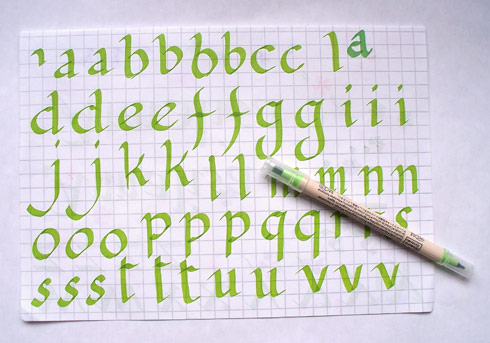 a a b b b b c c l a
d d e e f f g g i i i
j j k k l l m m n n
o o o p p p p q q r r s
s s s t t t u u v v v